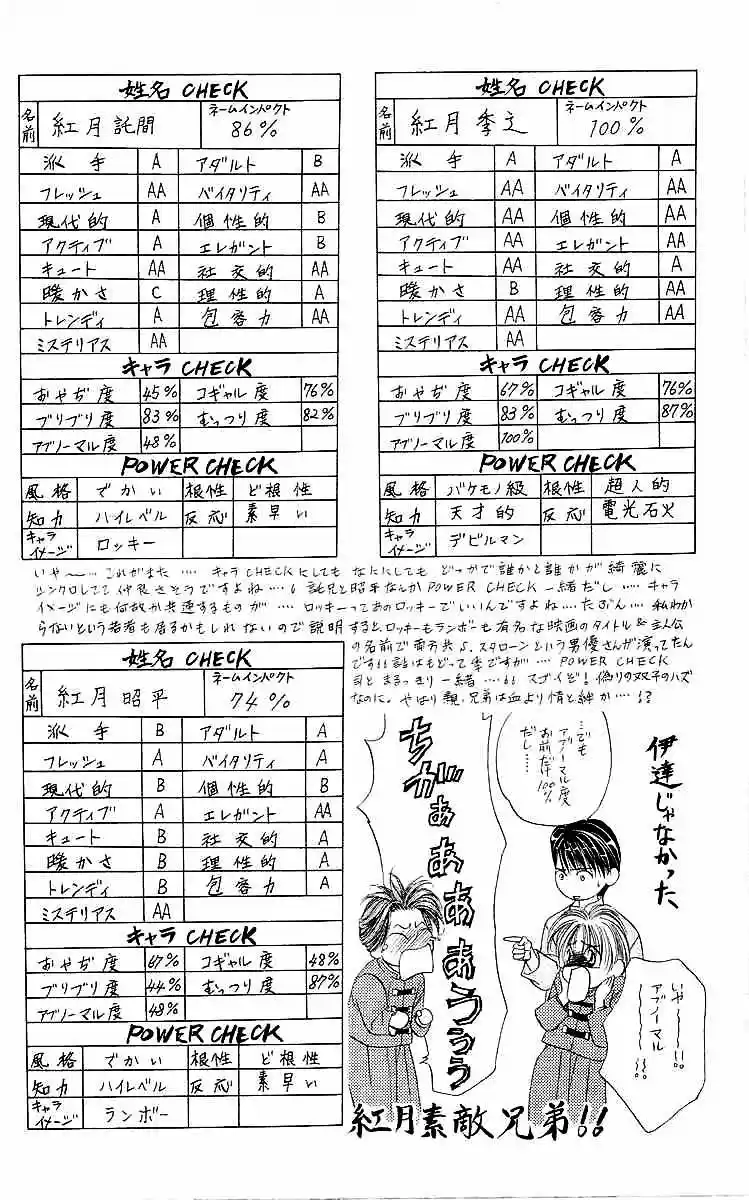 姓名 CHECK
名前 紅月託間 ネームインパクト 86%
派手 A アダルト B
フレッシュ AA バイタリティ AA
現代的 A 個性的 B
アクティブ A エレガント B
キュート AA 社交的 AA
暖かさ C 理性的 A
トレンディ A 包容力 AA
ミステリアス AA
キャラ CHECK
おやぢ度 45% コギャル度 76%
ブリブリ度 83% むっつり度 82%
アブノーマル度 48%
POWER CHECK
風格 でかい 根性 ど根性
知力 ハイレベル 反応 素早い
キャライメージ ロッキー
姓名 CHECK
名前 紅月季之 ネームインパクト 100%
派手 A アダルト A
フレッシュ AA バイタリティ AA
現代的 AA 個性的 AA
アクティブ AA エレガント AA
キュート AA 社交的 A
暖かさ B 理性的 AA
トレンディ AA 包容力 AA
ミステリアス AA
キャラ CHECK
おやぢ度 67% コギャル度 76%
ブリブリ度 83% むっつり度 87%
アブノーマル度 100%
POWER CHECK
風格 バケモノ級 根性 超人的
知力 天才的 反応 電光石火
キャライメージ デビルマン
いや〜…これがまた….キャラCHECKにしてもなににしてもどっかで誰かと誰かが綺麗に
シンクロしてて仲良さそうですよね….。託兄と昭平なんかPOWER CHECK一緒だし…..キャラ
イメージにも何故か共通するものが….ロッキーってあのロッキーでいいんですよね….たぶん….私わか
らないという若者も居るかもしれないので説明するとロッキーもランボーも有名な映画のタイトル&主人公
の名前で両方共S.スタローンという男優さんが演ってたん
です!!話はもどって季ですが….POWER CHECK
司とまるっきり一緒….!!スゴイぞ!偽りの双子のハズ
なのに。やはり親、兄弟は血より情と絆か….!?
姓名 CHECK
名前 紅月昭平 ネームインパクト 74%
派手 B アダルト A
フレッシュ A バイタリティ A
現代的 B 個性的 B
アクティブ A エレガント AA
キュート B 社交的 A
暖かさ B 理性的 A
トレンディ B 包容力 A
ミステリアス AA
キャラ CHECK
おやぢ度 67% コギャル度 48%
ブリブリ度 44% むっつり度 87%
アブノーマル度 48%
POWER CHECK
風格 でかい 根性 ど根性
知力 ハイレベル 反応 素早い
キャライメージ ランボー
伊達じゃなかった
…でも
アブノーマル度
お前だけ100%
だし…
ちがぁぁぁぁぅぅぅ
いや〜
アブノーマル
〜!!
紅月素敵兄弟!!